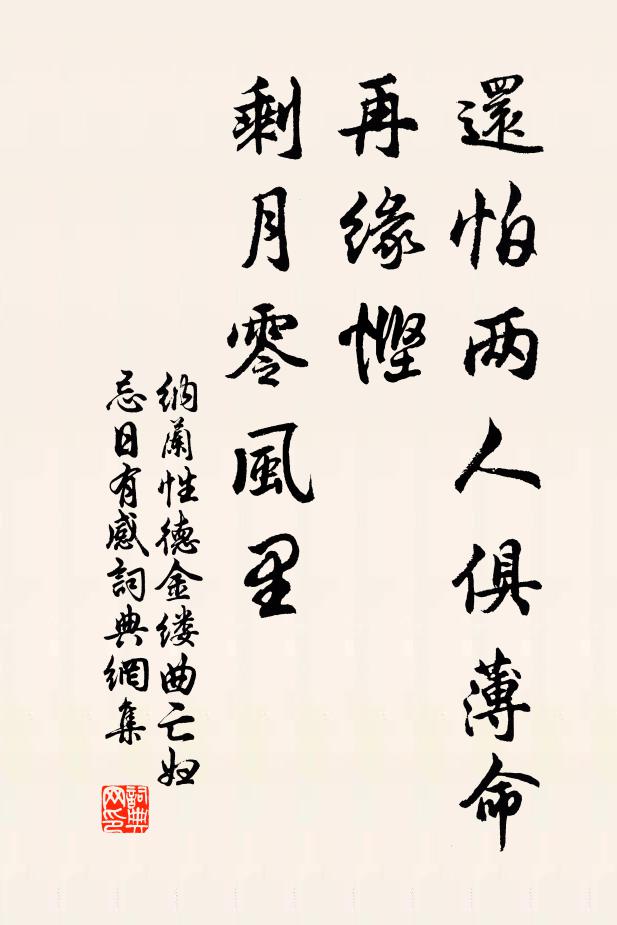 還怕两人俱薄命
再緣慳
剩月零風里
纳蘭性德金缕曲亡妇
忌日有感詞典網集
詞典
网印